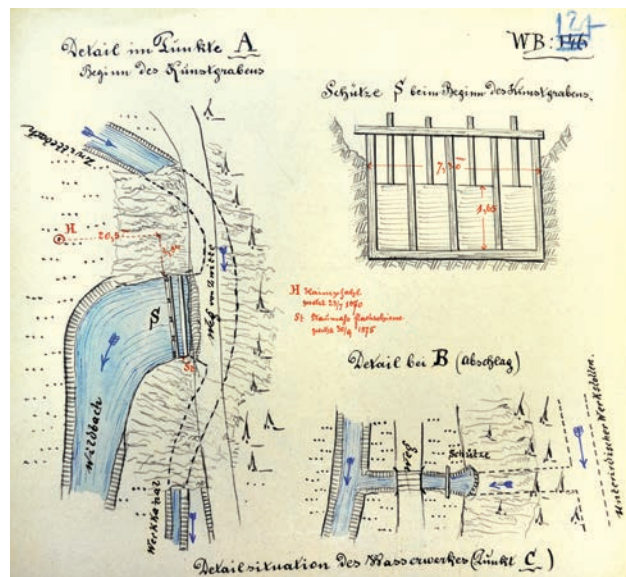 Detail im Punkte A
Beginn des Kunstgrabens
WB: 146
12
Schütze S beim Beginn des Kunstgrabens.
7,20
1,65
Zwittebach
H
20,5
Weg von Zwitte
S
St
Wildbach
Werkkanal
H Heimpfahl
gesetzt 23/7 1870
St Staumaß Flachschiene
gesetzt 30/9 1875
Detail bei B (Abschlag)
Weg
Schütze
Unterirdischer Werkstollen.
Detailsituation des Wasserwerkes (Punkt C)